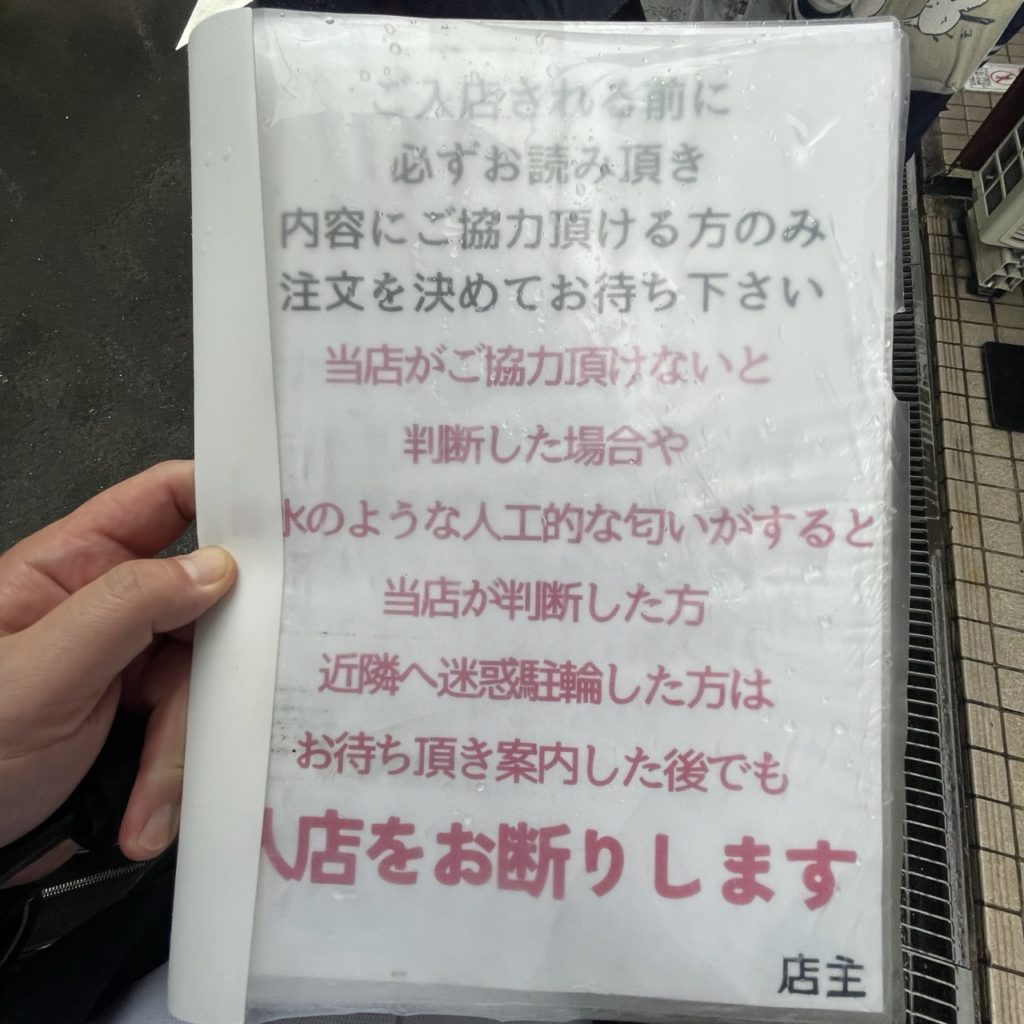 ご入店される前に
必ずお読み頂き
内容にご協力頂ける方のみ
注文を決めてお待ち下さい
当店がご協力頂けないと
判断した場合や
水のような人工的な匂いがすると
当店が判断した方
近隣へ迷惑駐輪した方は
お待ち頂き案内した後でも
入店をお断りします
店主